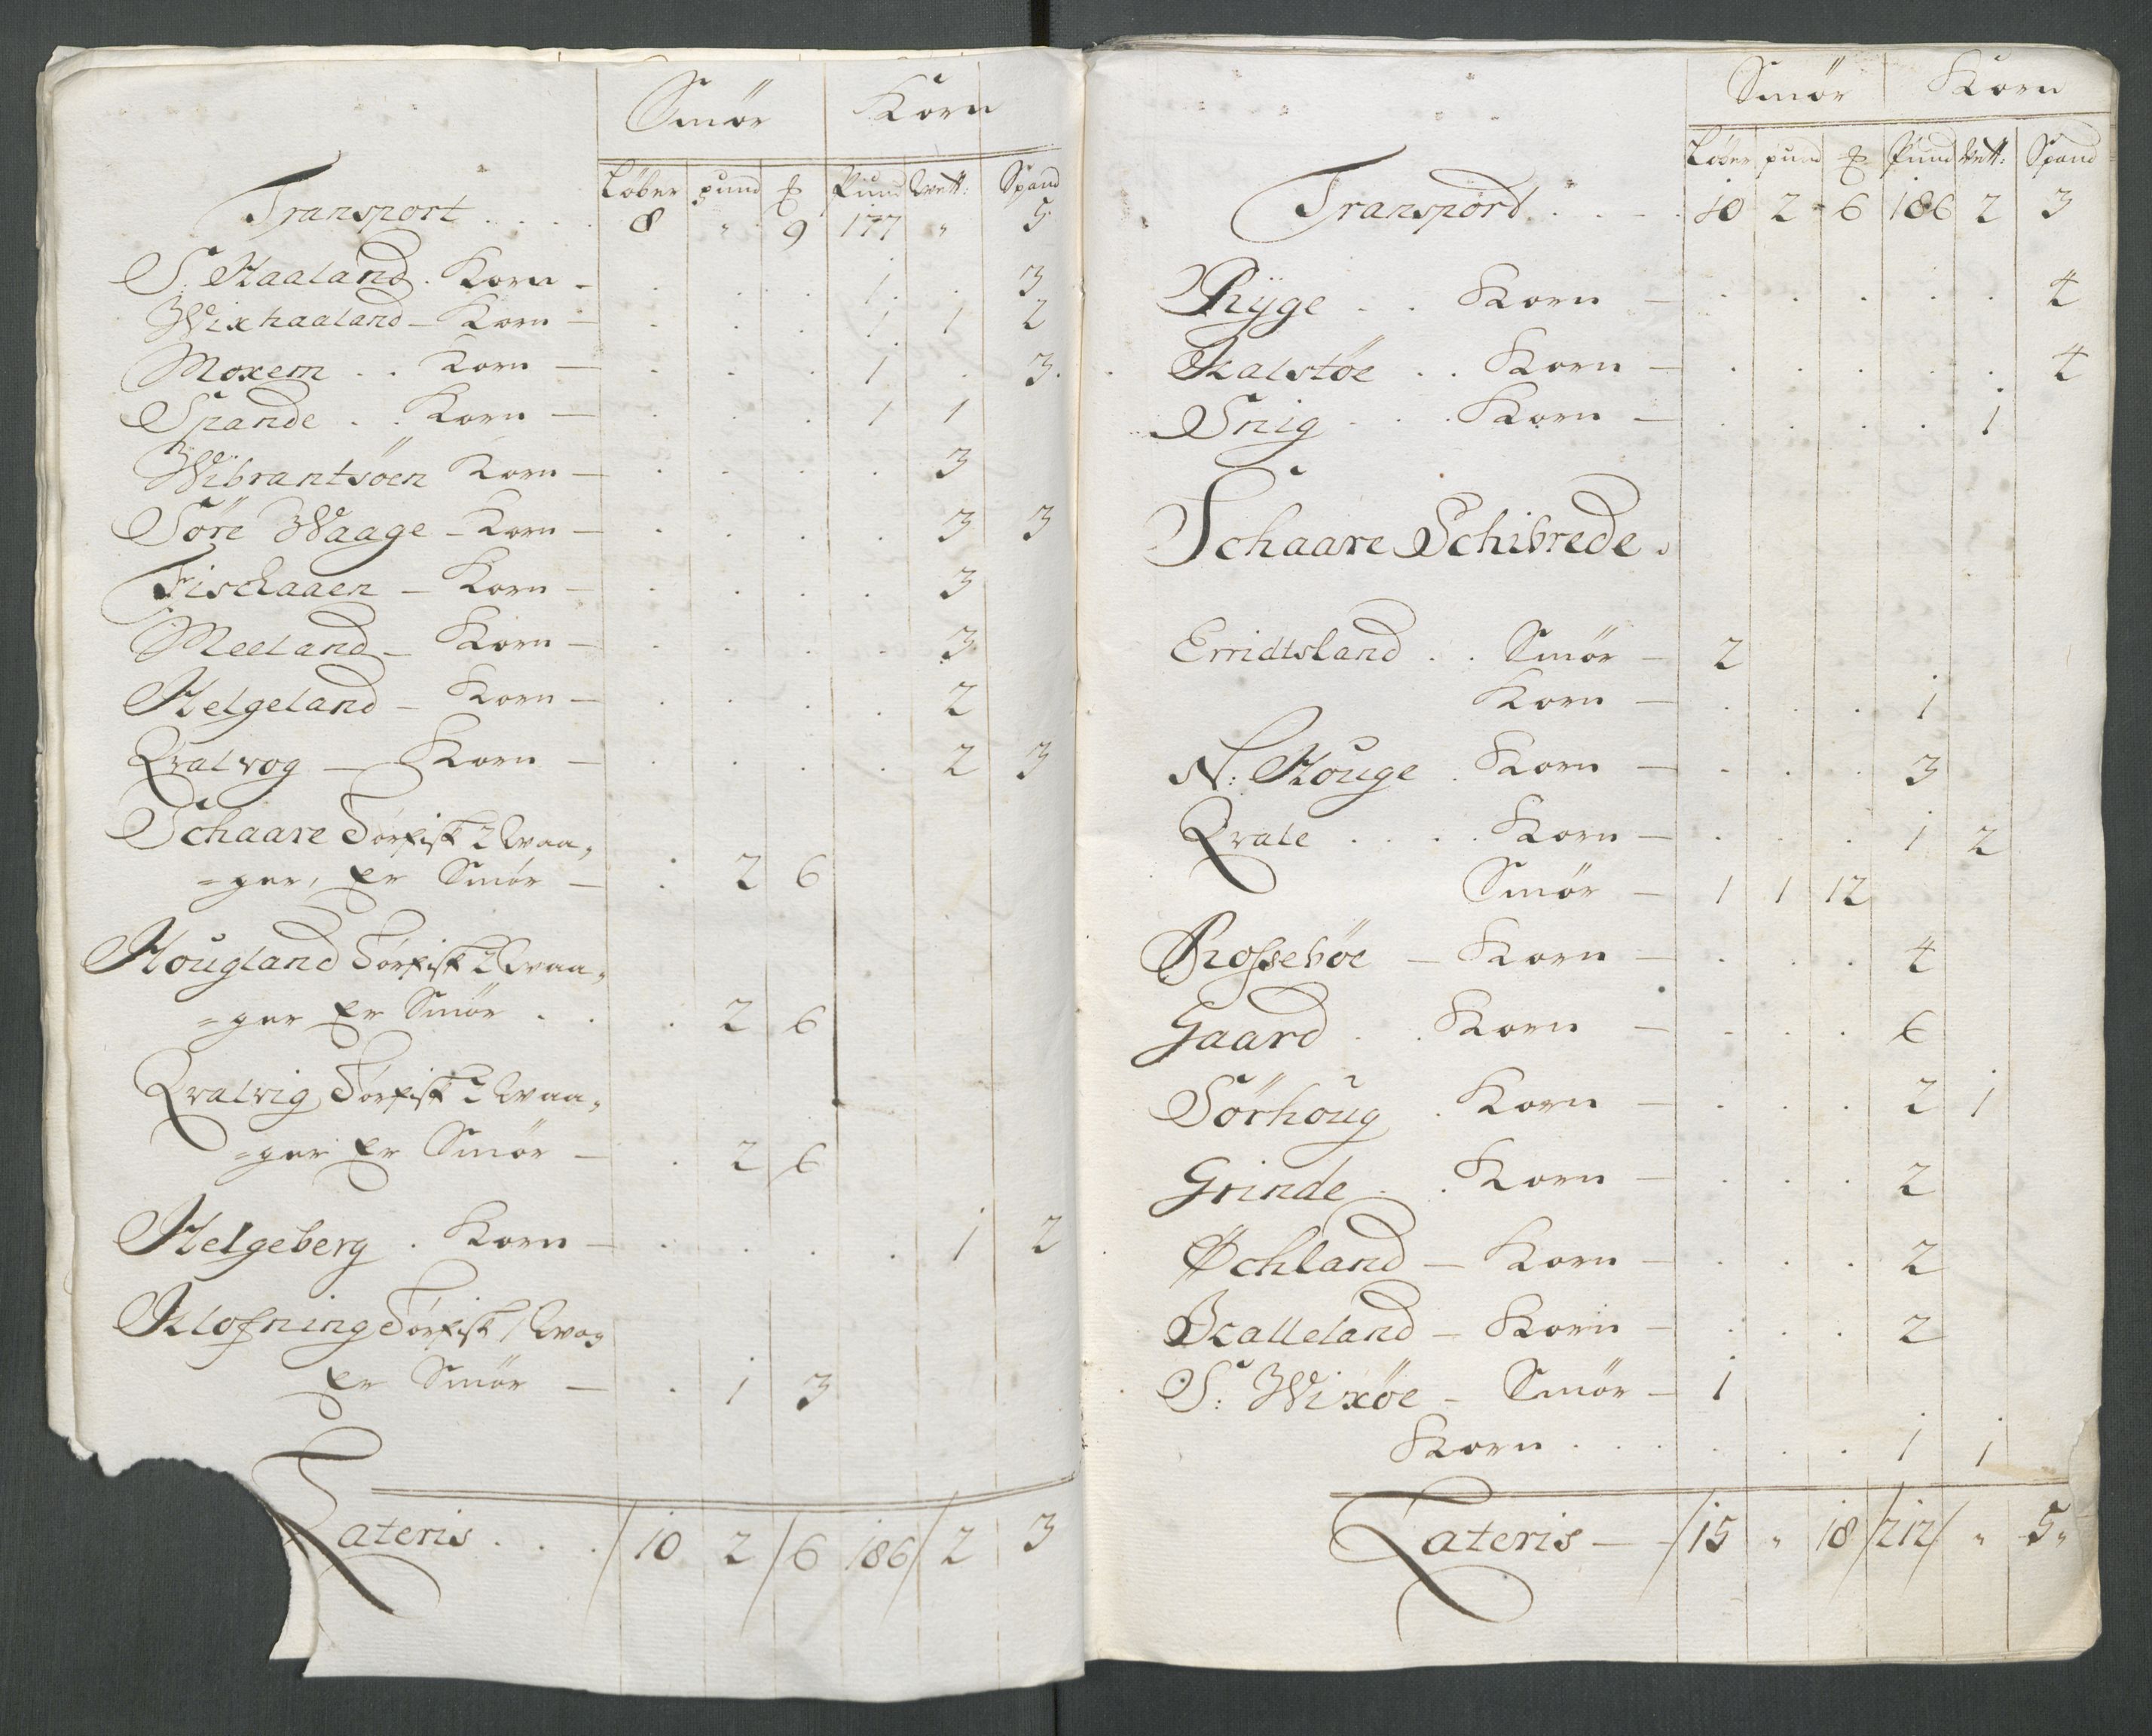 Smör Korn
Löber pund ℔ Pund Wett: Spand
Transport . . . . 8 " 9 177 " 5
S. Haaland. Korn - 1 . 3
Wixhaaland - Korn - 1 1 2
Moxem . . Korn — 1 . 3.
Spande . . Korn — 1 1
Wibrantsöen Korn — 3
Söre Waage - Korn — 3 3
Fischaaen — Korn — 3
Meeland - Korn — 3
Helgeland - Korn — 2
Qvalvog — Korn — 2 3
Schaare Törfisk 2 Qvaa„
=ger, Er Smör — 2 6
Hougland Törfisk 2 Qvaa„
=ger Er Smör . . . 2 6
Qvalvig Törfisk 2 Qvaa„
=ger Er Smör — . 2 6
Helgeberg . Korn — 1 2
Klofning Törfisk 1 Qvog
Er Smör — . 1 3
Lateris . . . 10 2 6 186 2 3
Smör Korn
Löber pund ℔ Pund Wett: Spand
Transport . . - . 10 2 6 186 2 3
Rÿge . . Korn — 4
Kalstöe . . Korn — 4
Snig . . . Korn — 1
Schaare Schibrede.
Erridtsland . . Smör — 2
Korn — 1
N: Houge . Korn — 3
Qvale . . . . Korn — 1 2
Smör — 1 1 12
Rosseböe — Korn — 4
Gaard . . Korn — 6
Sörhoug . Korn — 2 1
Grinde . . Korn — 2
Øchland — Korn — 2
Bcalleland — Korn — 2
S: Wixöe - Smör — 1
Korn . . . 1 1
Lateris — 15 " 18 212 " 5„